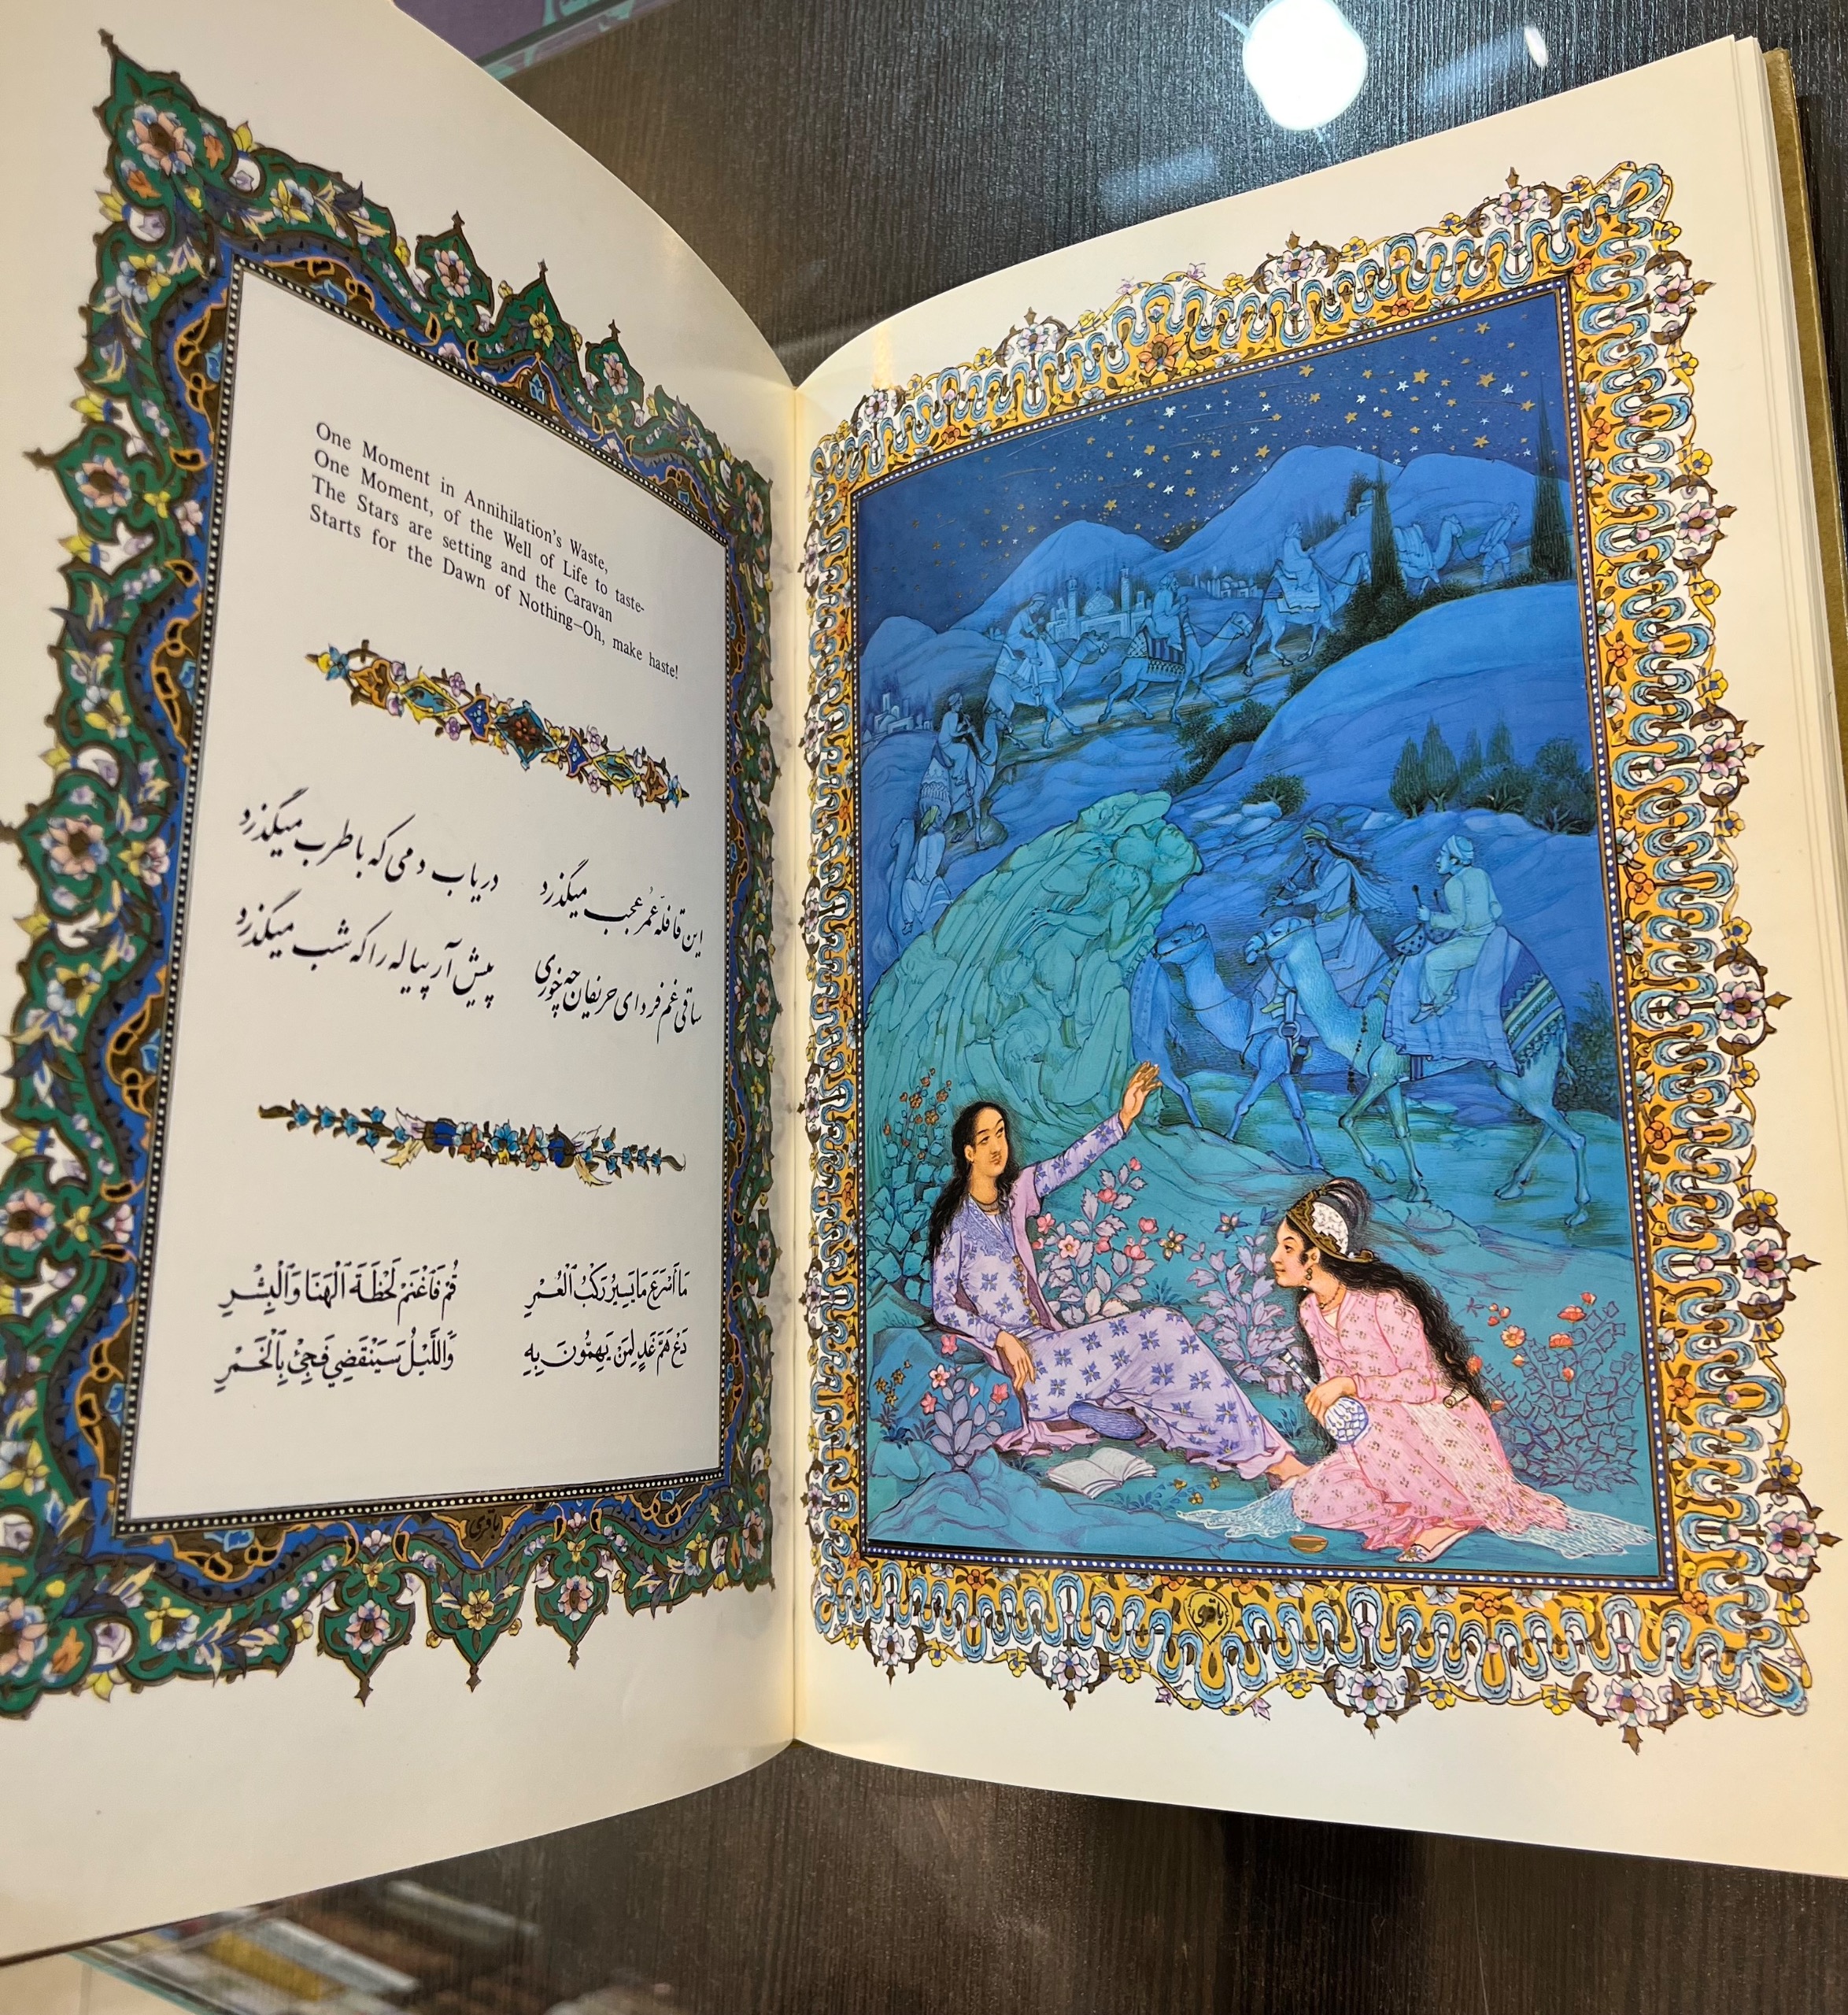 One Moment in Annihilation's Waste,
One Moment, of the Well of Life to taste-
The Stars are setting and the Caravan
Starts for the Dawn of Nothing–Oh, make haste!
این قافلهٔ عمر عجب میگذرد دریاب دمی که با طرب میگذرد
ساقی غم فردای حریفان چه خوری پیش آر پیاله را که شب میگذرد
مَا أَسْرَعَ مَا يَسِيرُ رَكْبُ ٱلْعُمْرِ قُمْ فَٱغْنَمْ لَحْظَةَ ٱلْهَنَا وَٱلْبِشْرِ
دَعْ هَمَّ غَدٍ لِمَنْ يَهِمُّونَ بِهِ وَٱللَّيْلُ سَيَنْقَضِي فَجِئْ بِٱلْخَمْرِ
باقری
باقری